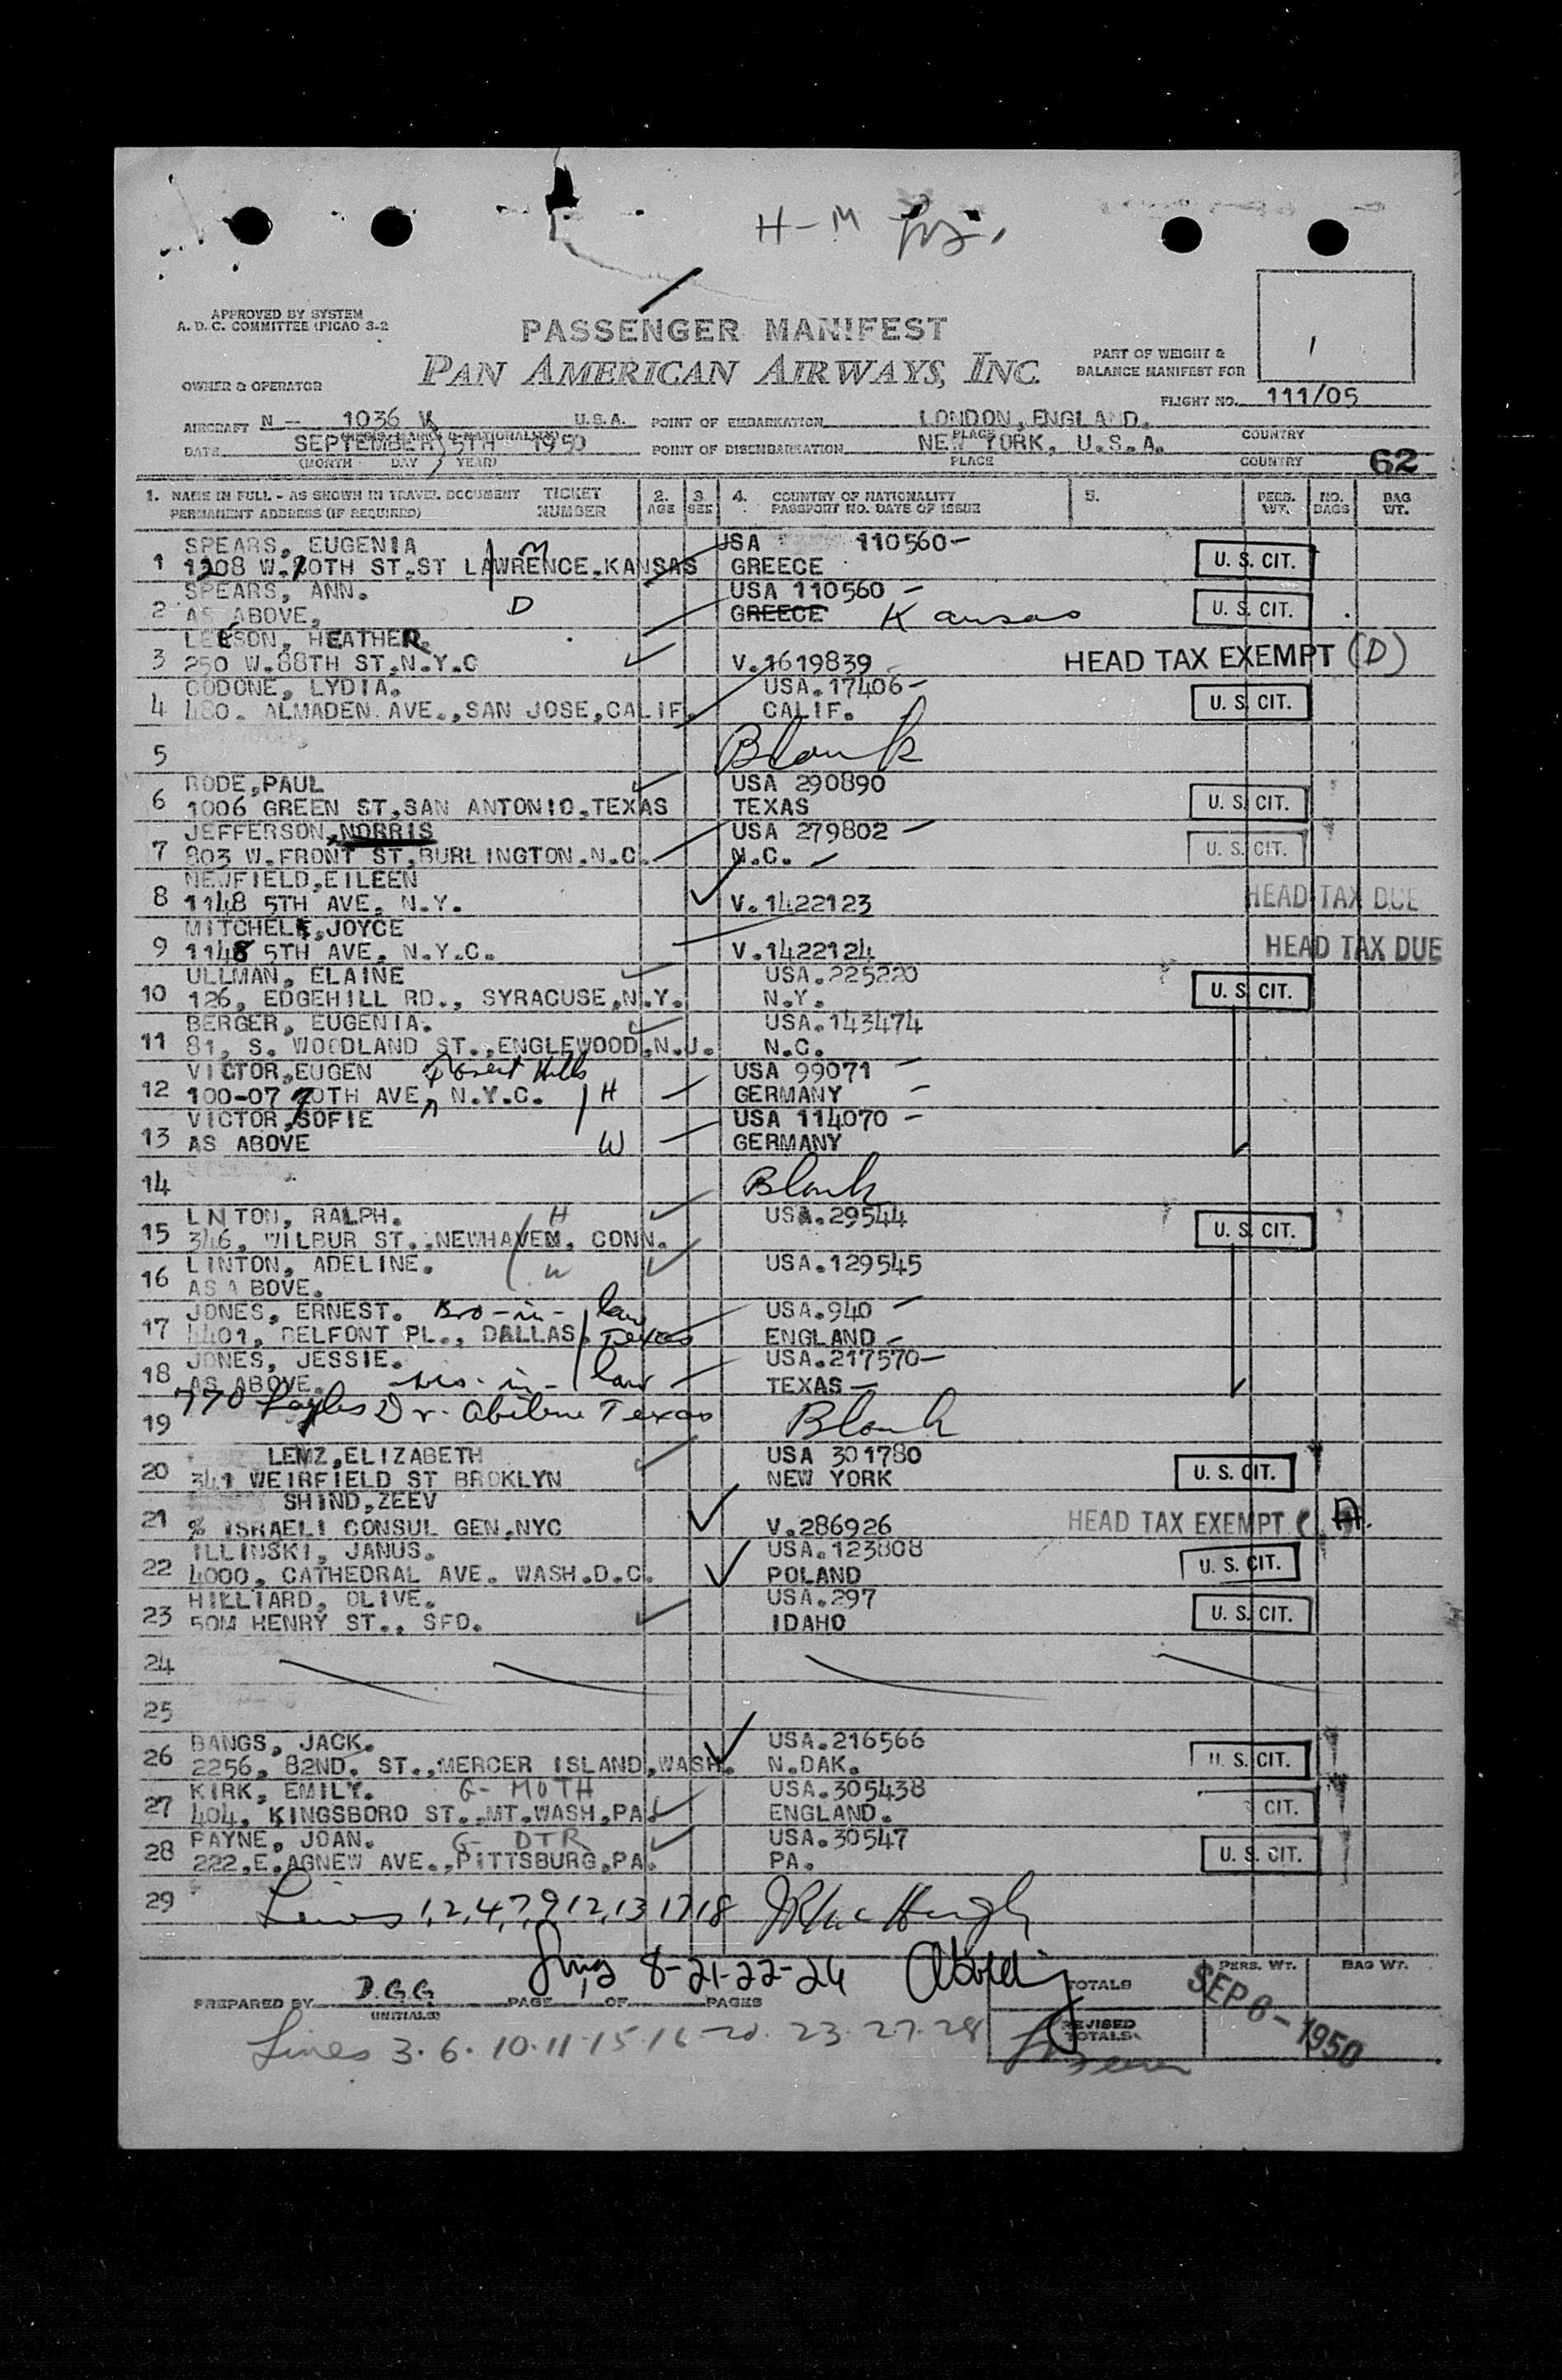 H-M
APPROVED BY SYSTEM
A. D. C. COMMITTEE (PICAO 3-2
PASSENGER MANIFEST
PAN AMERICAN AIRWAYS, INC.
PART OF WEIGHT &
BALANCE MANIFEST FOR
OWNER & OPERATOR
FLIGHT NO. 111/05
AIRCRAFT N - 1036 V U.S.A. POINT OF EMBARKATION LONDON, ENGLAND.
PLACE COUNTRY
DATE SEPTEMBER 5TH 1950 POINT OF DISEMBARKATION NEW YORK, U.S.A.
(MONTH DAY YEAR) PLACE COUNTRY 62
1. NAME IN FULL - AS SHOWN IN TRAVEL DOCUMENT TICKET 2. 3. 4. COUNTRY OF NATIONALITY 5. PERS. NO. BAG
PERMANENT ADDRESS (IF REQUIRED) NUMBER AGE SEX PASSPORT NO. DATE OF ISSUE WT. BAGS WT.
SPEARS, EUGENIA M USA 110560-
1 1208 W.20TH ST.ST LAWRENCE.KANSAS GREECE U. S. CIT.
SPEARS, ANN. USA 110560 -
2 AS ABOVE. D GREECE Kansas U. S. CIT.
LEESON, HEATHER.
3 250 W.88TH ST.N.Y.C V.1619839 HEAD TAX EXEMPT (D)
CODONE, LYDIA. USA.17406-
4 480. ALMADEN AVE.,SAN JOSE,CALIF. CALIF. U. S. CIT.
5 Blank
RODE,PAUL USA 290890
6 1006 GREEN ST,SAN ANTONIO,TEXAS TEXAS U. S. CIT.
JEFFERSON,NORRIS USA 279802 -
7 803 W.FRONT ST,BURLINGTON.N.C. N.C. - U. S. CIT.
NEWFIELD,EILEEN
8 1148 5TH AVE. N.Y. V.1422123 HEAD TAX DUE
MITCHELL,JOYCE
9 1148 5TH AVE. N.Y.C. V.1422124 HEAD TAX DUE
ULLMAN, ELAINE USA.225220
10 126, EDGEHILL RD., SYRACUSE,N.Y. N.Y. U. S. CIT.
BERGER, EUGENIA. USA.143474
11 81, S. WOODLAND ST.,ENGLEWOOD,N.J. N.C.
VICTOR,EUGEN Forest Hills USA 99071 -
12 100-07 70TH AVE, N.Y.C. H GERMANY -
VICTOR,SOFIE USA 114070 -
13 AS ABOVE W GERMANY
14 Blank
LNTON, RALPH. H USA.29544
15 346, WILBUR ST.,NEWHAVEN, CONN. U. S. CIT.
LINTON, ADELINE. W USA.129545
16 AS A BOVE.
JONES, ERNEST. Bro-in-law USA.940 -
17 4401, DELFONT PL., DALLAS, Texas ENGLAND -
JONES, JESSIE. USA.217570-
18 AS ABOVE. sis-in-law TEXAS -
19 Dr. Abilene Texas Blank
LEMZ,ELIZABETH USA 301780
20 341 WEIRFIELD ST BROKLYN NEW YORK U. S. CIT.
SHIND,ZEEV
21 % ISRAELI CONSUL GEN,NYC V.286926 HEAD TAX EXEMPT ( A.
ILLINSKI, JANUS. USA.123808
22 4000, CATHEDRAL AVE. WASH.D.C. POLAND U. S. CIT.
HILLIARD, OLIVE. USA.297
23 50M HENRY ST., SFO. IDAHO U. S. CIT.
24
25
BANGS, JACK. USA.216566
26 2256, 82ND. ST.,MERCER ISLAND,WASH. N.DAK. U. S. CIT.
KIRK, EMILY. G- MOTH USA.305438
27 404, KINGSBORO ST.,MT.WASH,PA. ENGLAND. CIT.
PAYNE, JOAN. G- DTR USA.30547
28 222,E.AGNEW AVE.,PITTSBURG,PA. PA. U. S. CIT.
29 Lines 1,2,4,7,9 12,13 17,18
Lines 8-21-22-26
PREPARED BY D.G.G. PAGE OF PAGES TOTALS PERS. WT. BAG WT.
(INITIALS)
SEP 6 - 1950
REVISED
TOTALS
Lines 3. 6. 10. 11 - 15. 16 - 20. 23. 27. 28